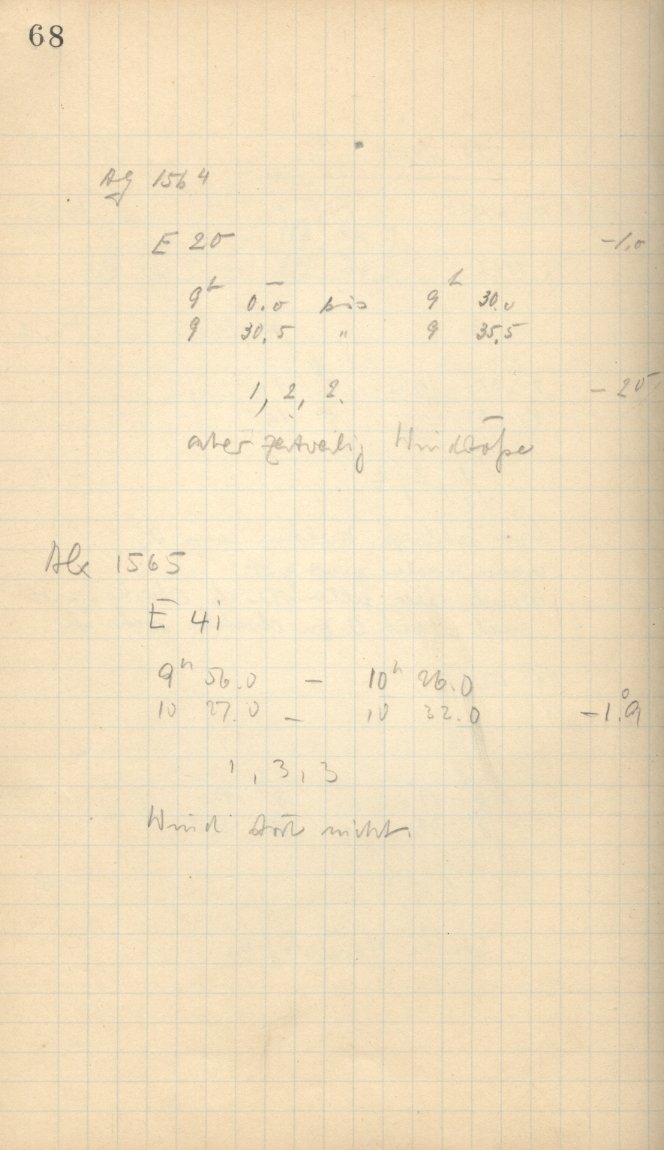 68
Ag 1564
E 20 -1,0
9h 0.0 bis 9h 30.0
9 30.5 " 9 35.5
1, 2, 2. - 20
aber zeitweilig Windstöße
1565
E 41
9h 56.0 - 10h 26.0
10 27.0 - 10 32.0 -1.°9
1, 3, 3
Wind stört nicht.